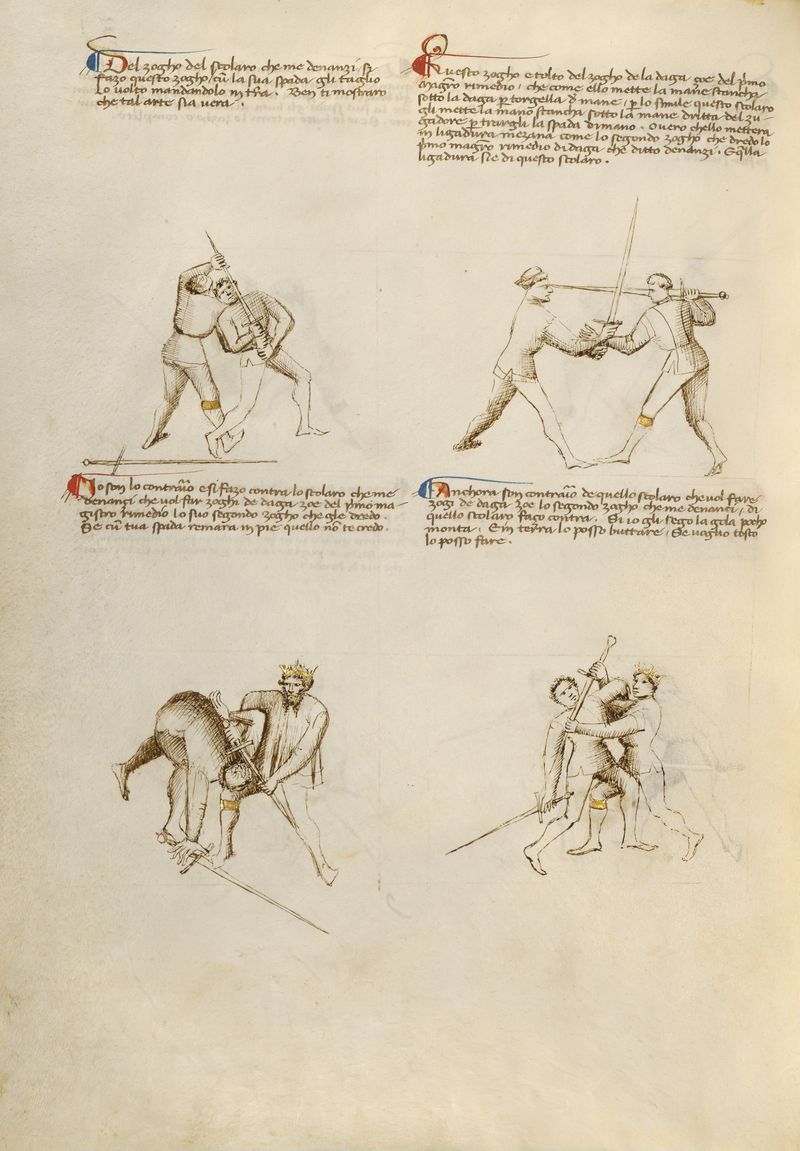 Del zogho del scolaro che me denanzi si
fazo questo zogho cū la sua spada gli taglio
lo volto mandandolo in t̄ra. Ben ti mostraro
che tal arte sia vera.
Questo zogho e tolto del zogho de la daga, zoe del p̄mo
magr̄o rimedio, che come ello mette la mane stancha
sotto la daga p torgella d mane, p lo simile questo scolaro
gli mette la mano stancha sotto la mane dritta del zu-
gadore p trargli la spada di mano. Overo chello mettera
in ligadura mezana come lo segondo zogho che dredo lo
p̄mo magr̄o rimedio di daga che ditto denanzi. E q̄lla
ligadura sie di questo scolaro.
Io son lo contrario e si fazo contra lo scolaro che me
denançi che vol far zoghi de daga zoe del p̄mo ma-
gistro rimedio lo suo segondo zogho che gle dredo.
Se cū tua spada remara in pie quello nō te credo.
Anchora son contrario de quello scolaro che vol fare
zogi de daga zoe lo segondo zogho che me denanci, di
quello scolaro faço contra. Si io gli sego la gola pocho
monta. E in terra lo posso buttare, se voglio tosto
lo posso fare.